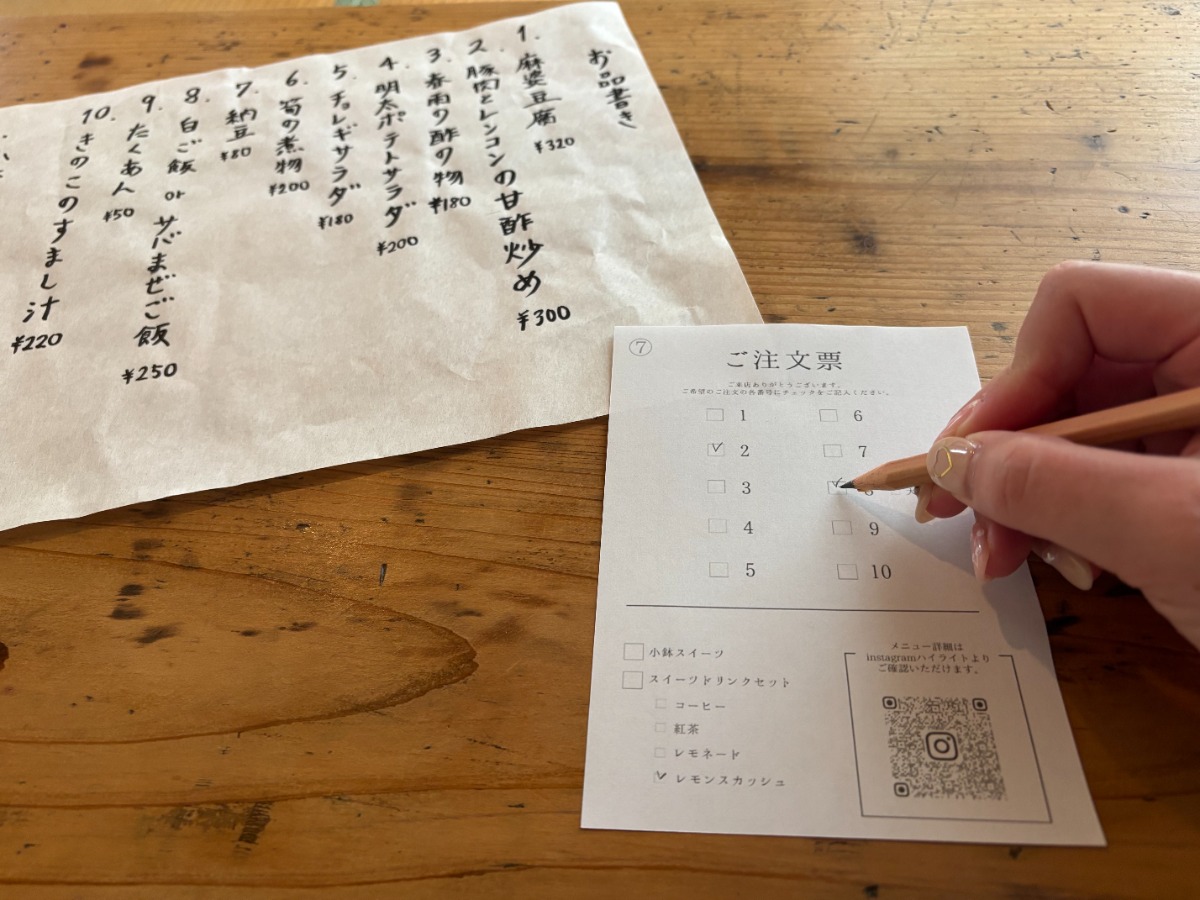 お品書き
1. 麻婆豆腐 ¥320
2. 豚肉とレンコンの甘酢炒め ¥300
3. 春雨の酢の物 ¥180
4. 明太ポテトサラダ ¥200
5. チョレギサラダ ¥180
6. 筍の煮物 ¥200
7. 納豆 ¥80
8. 白ご飯 or サバまぜご飯 ¥250
9. たくあん ¥50
10. きのこのすまし汁 ¥220
⑦
ご注文票
ご来店ありがとうございます。
ご希望のご注文の各番号にチェックをご記入ください。
1
2
3
4
5
6
7
8
9
10
小鉢スイーツ
スイーツドリンクセット
コーヒー
紅茶
レモネード
レモンスカッシュ
メニュー詳細は
instagramハイライトより
ご確認いただけます。